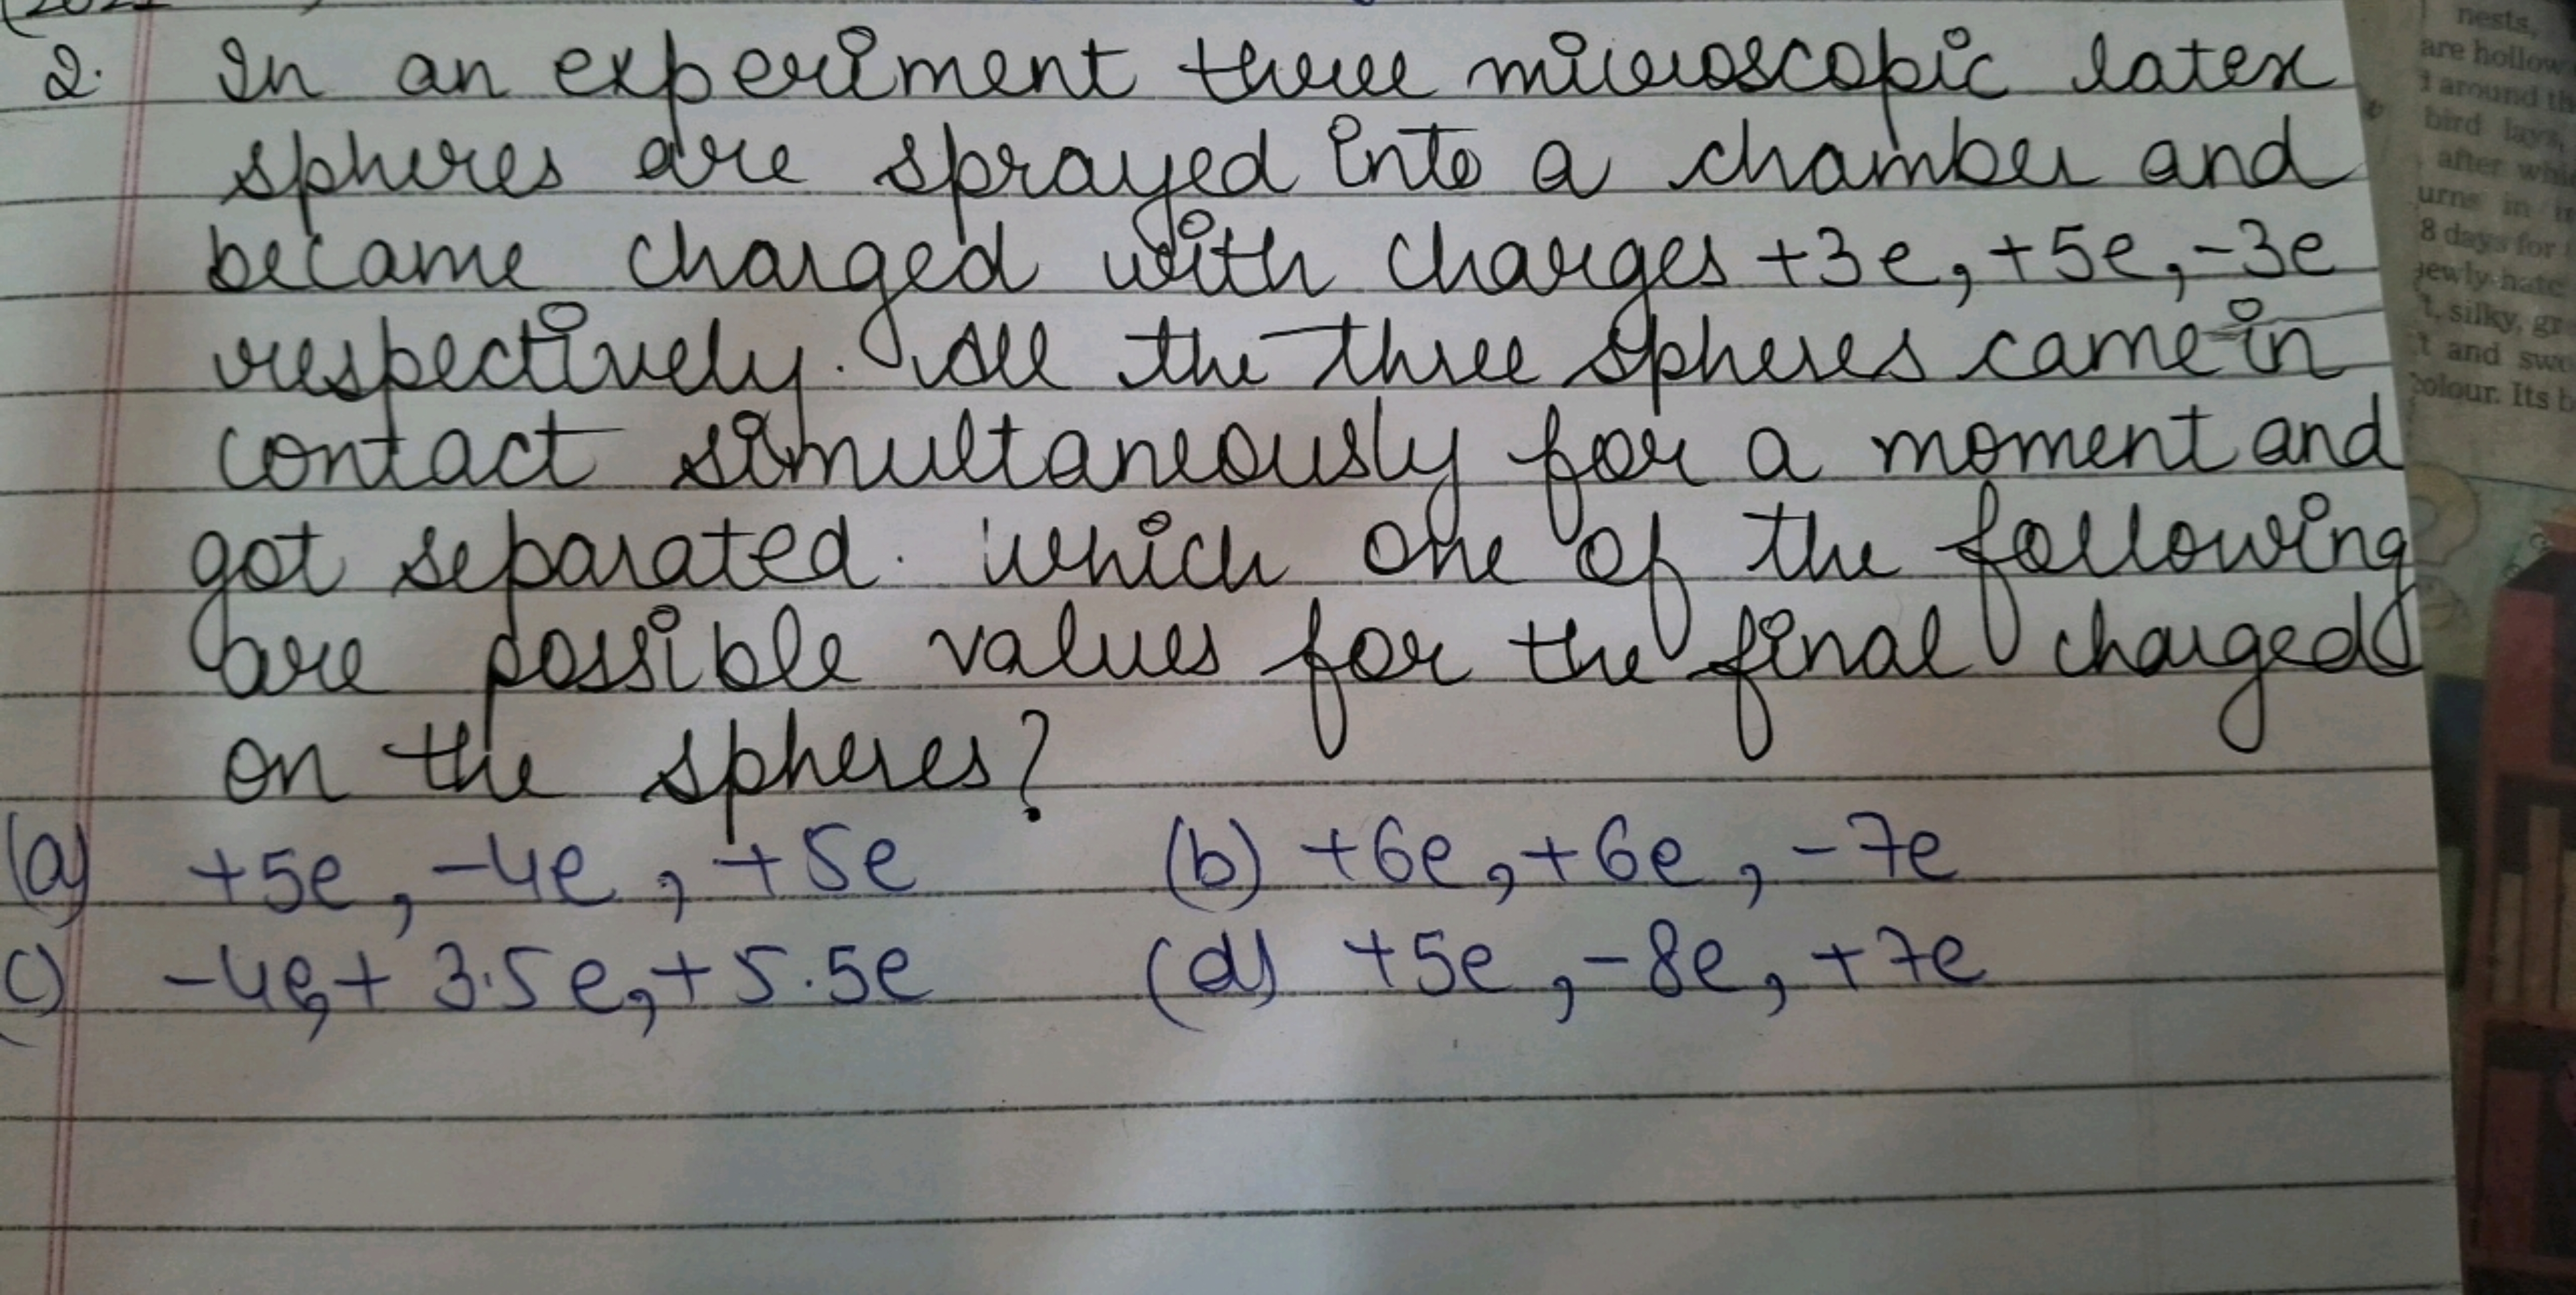 2. In an experiment three microscopic latex
spheres are sprayed into a chamber and
became charged with charges +3e, +5e, -3e
respectively. All the three spheres came in
contact simultaneously for a moment and
got separated. which one of the following
are possible values for the final charged
on the spheres?
(a) +5e, -4e, +5e (b) +6e, +6e, -7e
c) -4e, + 3.5e, + 5.5e (d) +5e, -8e, +7e
nests,
are hollow
around th
bird lays,
after whi
urns in
8 days for
ewly-hatc
t, silky, gr
t and swe
colour. Its b